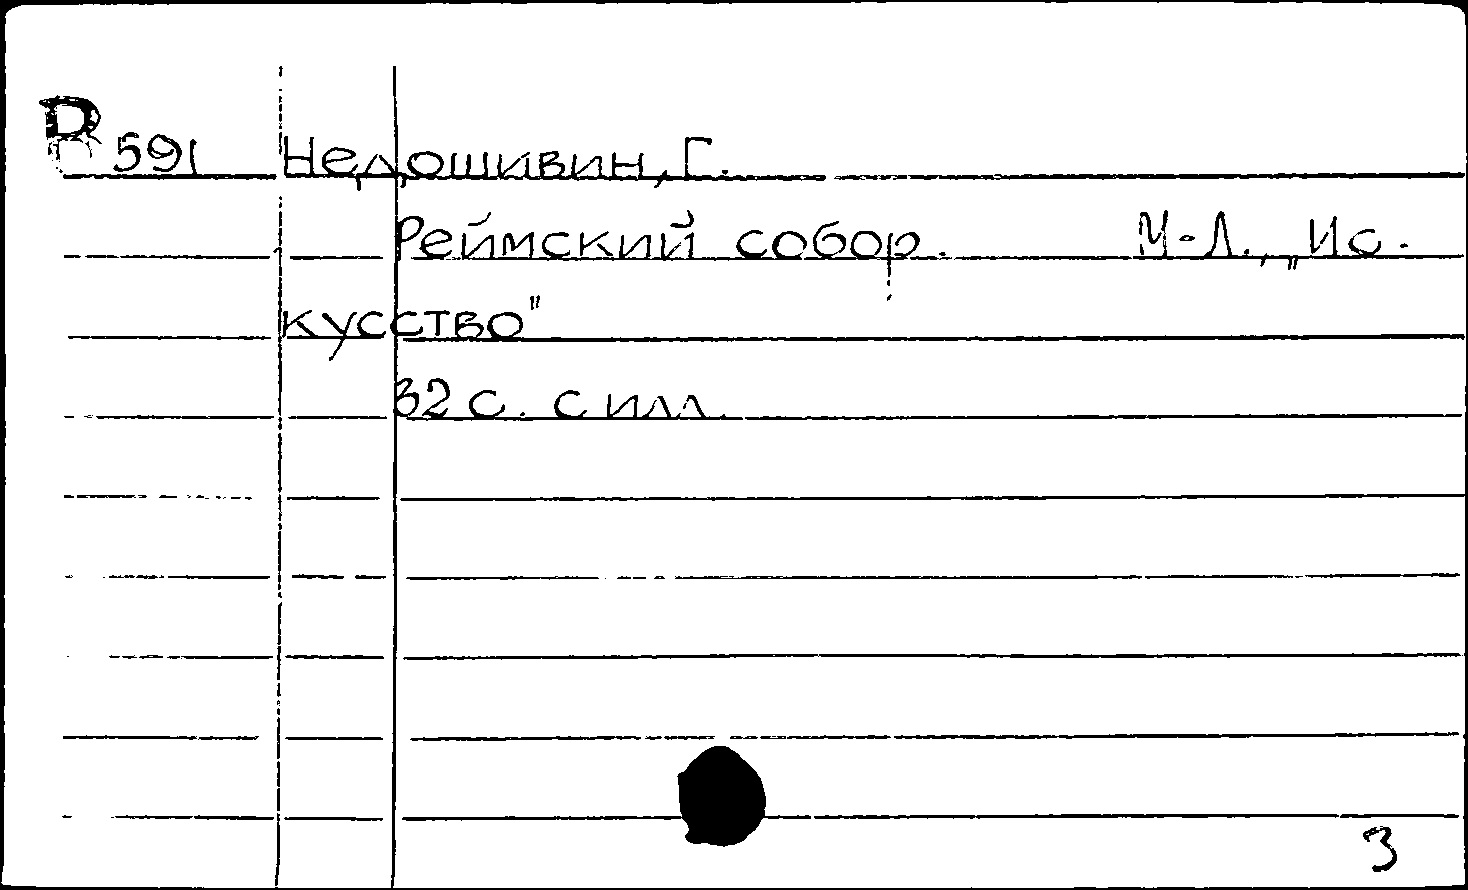 В 591 Недошивин, Г.
Реймский собор. М-Л., „Ис-
кусство"
32 с. с илл.
3